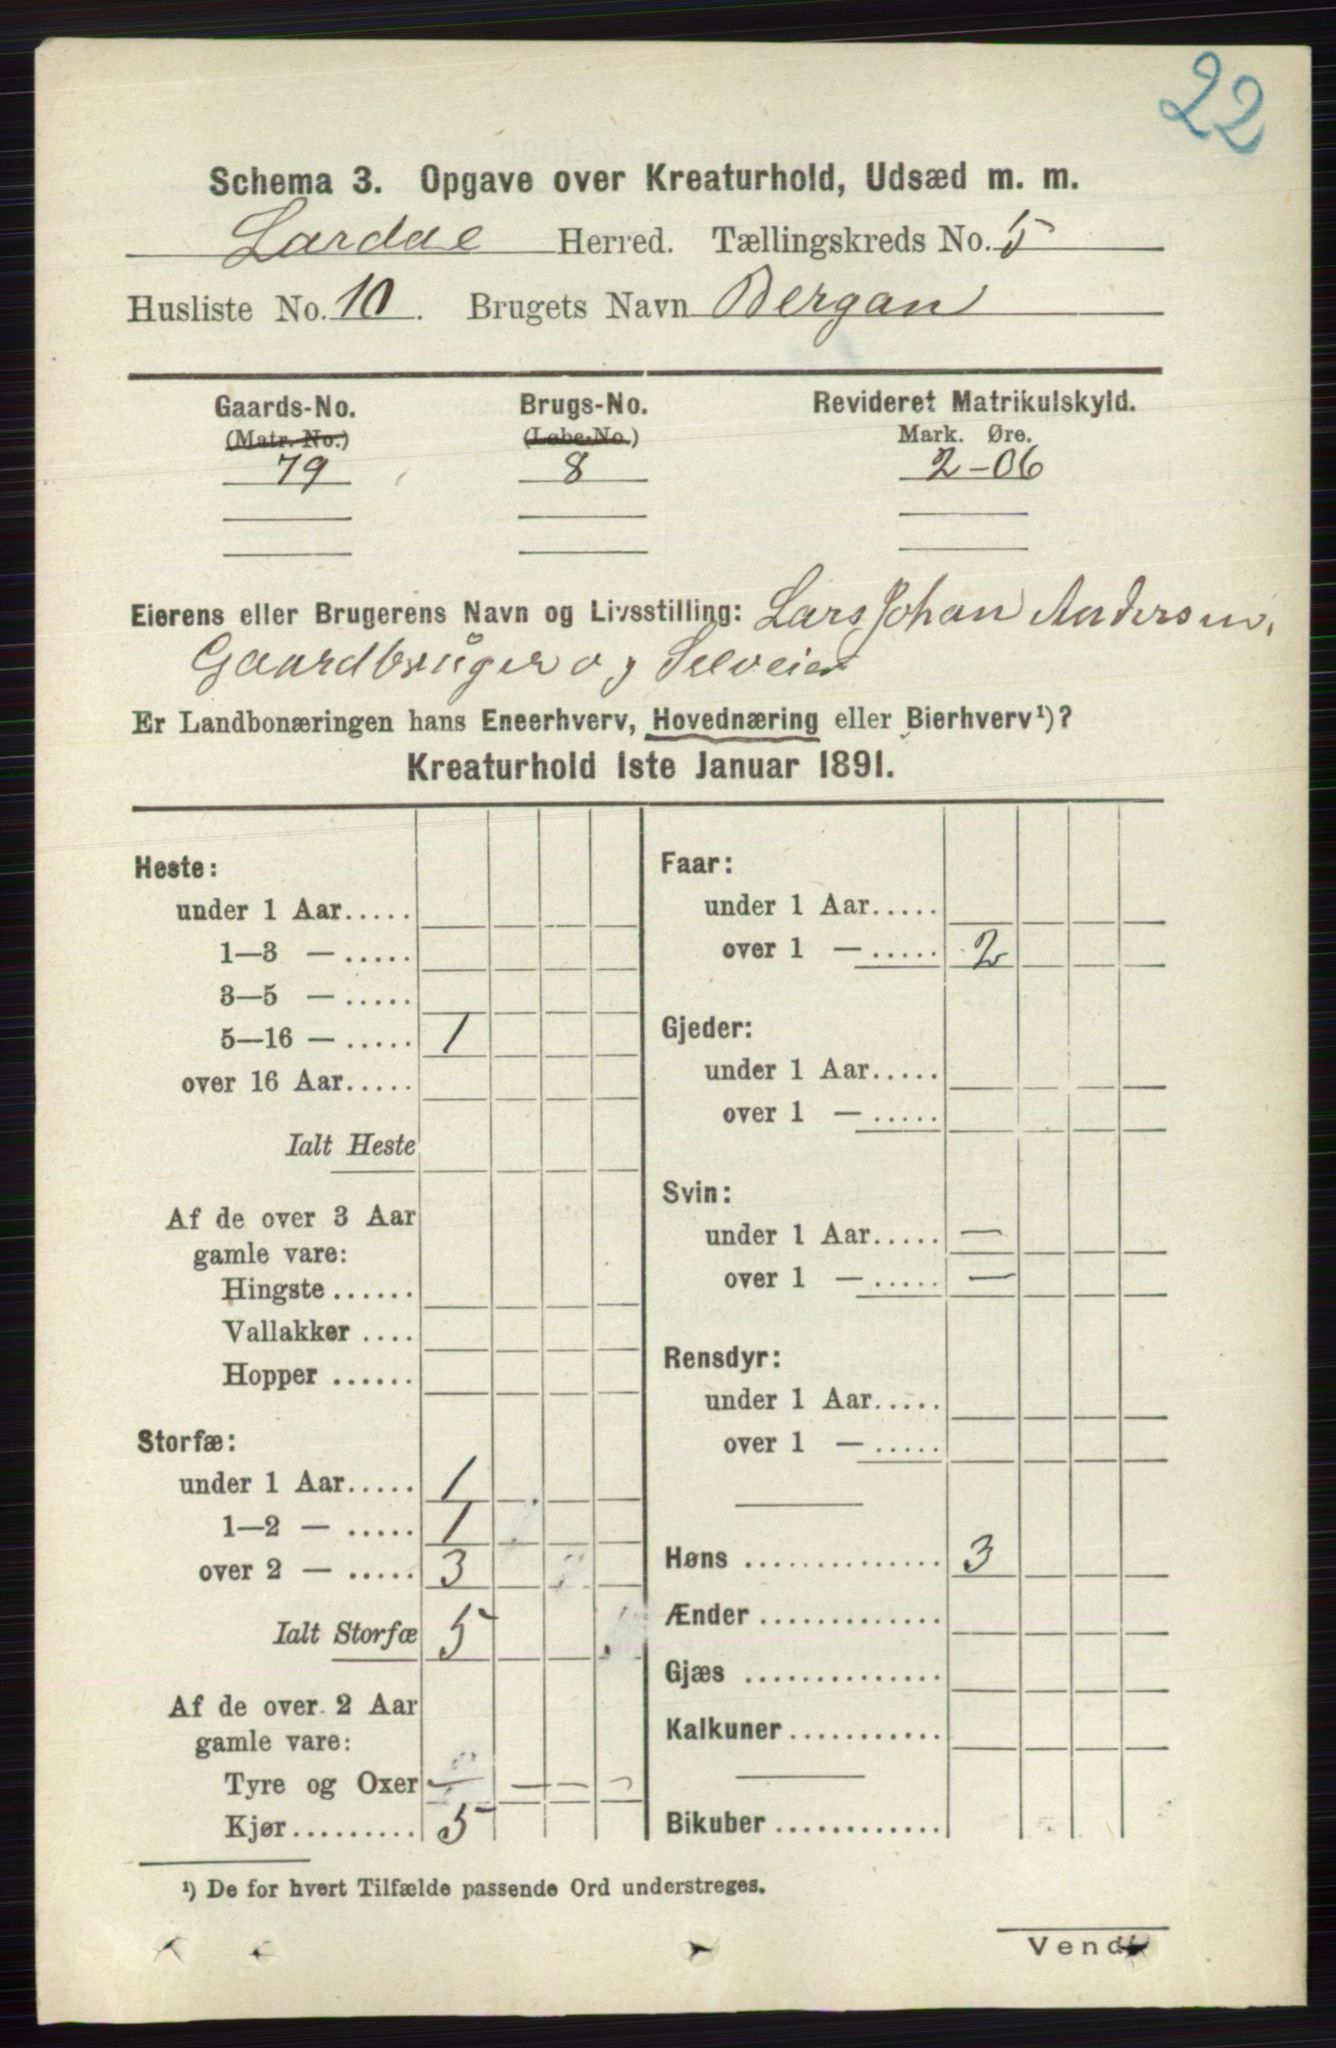 22
Schema 3. Opgave over Kreaturhold, Udsæd m. m.
Lardal Herred. Tællingskreds No. 5
Husliste No. 10. Brugets Navn Bergan
Gaards-No. Brugs-No. Revideret Matrikulskyld.
(Matr. No.) (Løbe-No.) Mark. Øre.
79 8 2-06
Eierens eller Brugerens Navn og Livsstilling: Lars Johan Andersen,
Gaardbruger og Selveier
Er Landbonæringen hans Eneerhverv, Hovednæring eller Bierhverv¹)?
Kreaturhold 1ste Januar 1891.
Heste:
under 1 Aar.....
1—3 — .....
3—5 — .....
5—16 — ..... 1
over 16 Aar.....
Ialt Heste
Af de over 3 Aar
gamle vare:
Hingste ......
Vallakker ....
Hopper ......
Storfæ:
under 1 Aar..... 1
1—2 — ..... 1
over 2 — ..... 3
Ialt Storfæ 5
Af de over 2 Aar
gamle vare:
Tyre og Oxer — — — —
Kjør......... 5
Faar:
under 1 Aar.....
over 1 — ..... 2
Gjeder:
under 1 Aar.....
over 1 — .....
Svin:
under 1 Aar..... —
over 1 — ..... —
Rensdyr:
under 1 Aar.....
over 1 — .....
Høns .............. 3
Ænder .............
Gjæs ..............
Kalkuner ...........
Bikuber ............
¹) De for hvert Tilfælde passende Ord understreges.
Vend!